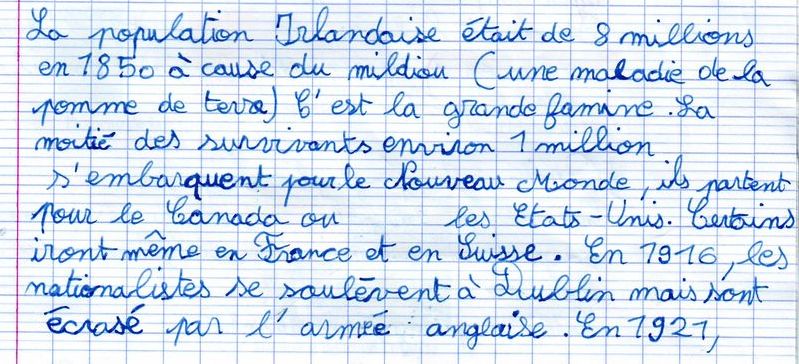 La population Irlandaise était de 8 millions
en 1850 à cause du mildiou (une maladie de la
pomme de terre) C'est la grande famine. La
moitié des survivants environ 1 million
s'embarquent pour le Nouveau Monde, ils partent
pour le Canada ou les Etats-Unis. Certains
iront même en France et en Suisse. En 1916, les
nationalistes se soulèvent à Dublin mais sont
écrasé par l'armée anglaise. En 1921,